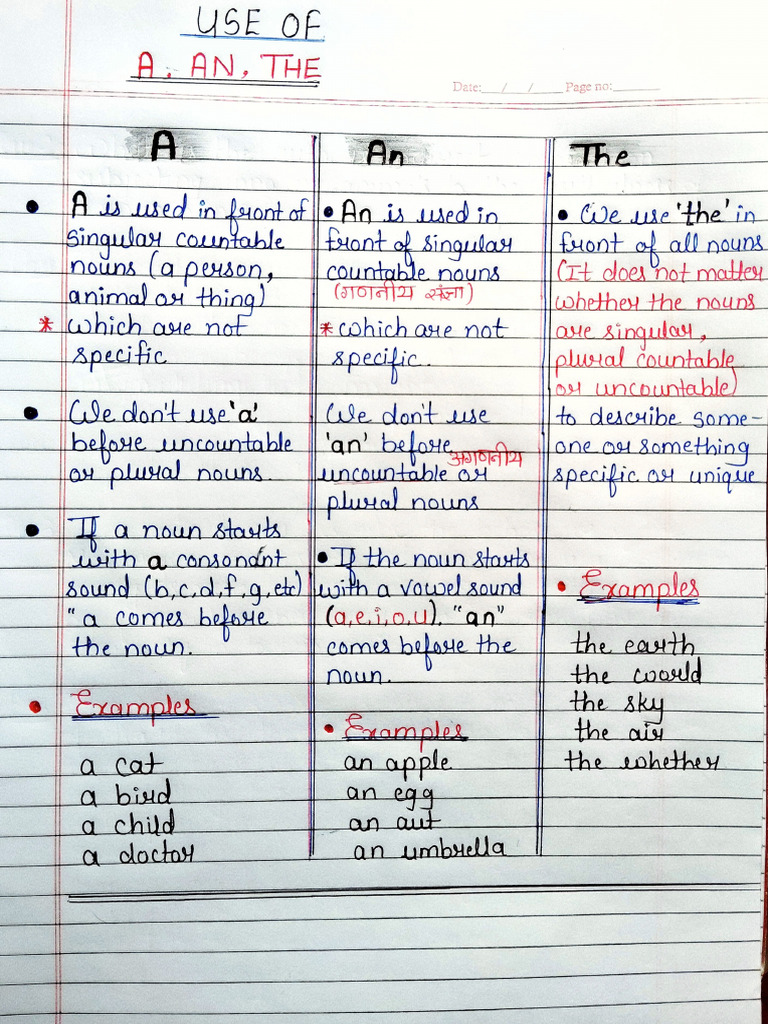 USE OF
A, AN, THE
Date:___/___/___ Page no:______
A
• A is used in front of
singular countable
nouns (a person,
animal or thing)
* which are not
specific
• We don't use 'a'
before uncountable
or plural nouns.
• If a noun starts
with a consonant
sound (b,c,d,f,g,etc)
"a comes before
the noun.
• Examples
a cat
a bird
a child
a doctor
An
• An is used in
front of singular
countable nouns
(गणनीय संज्ञा)
* which are not
specific.
We don't use
'an' before
अगणनीय
uncountable or
plural nouns
• If the noun starts
with a vowel sound
(a,e,i,o,u). "an"
comes before the
noun.
• Examples
an apple
an egg
an aut
an umbrella
The
• We use 'the' in
front of all nouns
(It does not matter
whether the nouns
are singular,
plural countable
or uncountable)
to describe some-
one or something
specific or unique
• Examples
the earth
the world
the sky
the air
the whether